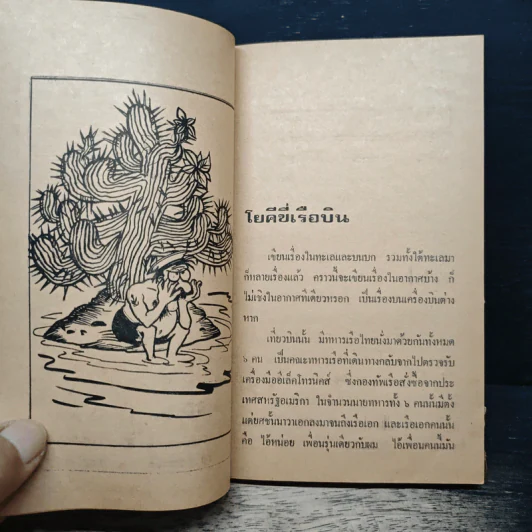 โยคีขี่เรือบิน
เขียนเรื่องในทะเลและบนบก รวมทั้งใต้ทะเลมา
ก็หลายเรื่องแล้ว คราวนี้จะเขียนเรื่องในอากาศบ้าง ก็
ไม่เชิงในอากาศทีเดียวหรอก เป็นเรื่องบนเครื่องบินต่าง
หาก
เที่ยวบินนั้น มีทหารเรือไทยนั่งมาด้วยกันทั้งหมด
๖ คน เป็นคณะทหารเรือที่เดินทางกลับจากไปตรวจรับ
เครื่องมืออีเล็คโทรนิคส์ ซึ่งกองทัพเรือสั่งซื้อจากประ
เทศสหรัฐอเมริกา ในจำนวนนายทหารทั้ง ๖ คนนั้นมีตั้ง
แต่ยศชั้นนาวาเอกลงมาจนถึงเรือเอก และเรือเอกคนนั้น
คือ ไอ้หน่อย เพื่อนรุ่นเดียวกับผม ไอ้เพื่อนคนนี้มัน